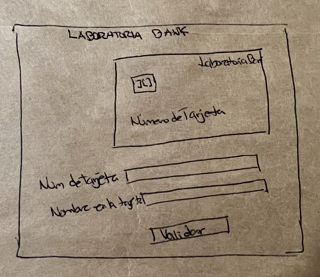 LABORATORIA BANK
Laboratoria Ban
Número de Tarjeta
Núm de tarjeta
Nombre en la tarjeta
Validar